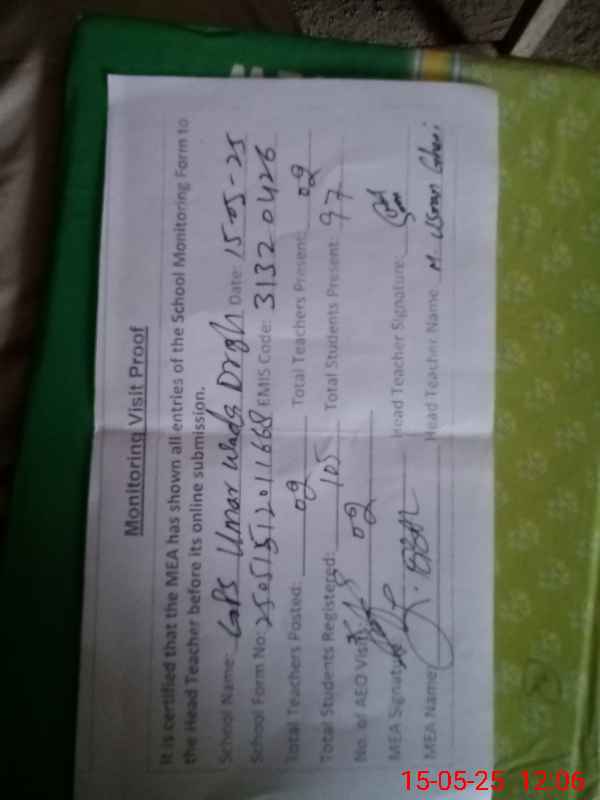 Monitoring Visit Proof
It is certified that the MEA has shown all entries of the School Monitoring Form to
the Head Teacher before its online submission.
School Name: GPS Umar Wada Drgh Date: 15-05-25
School Form No: 25051512011668 EMIS Code: 31320426
Total Teachers Posted: 02 Total Teachers Present: 02
Total Students Registered: 105 Total Students Present: 97
No. of AEO Visits 02
MEA Signature Head Teacher Signature:
MEA Name Head Teacher Name M. Usman Ghani
15-05-25 12:06